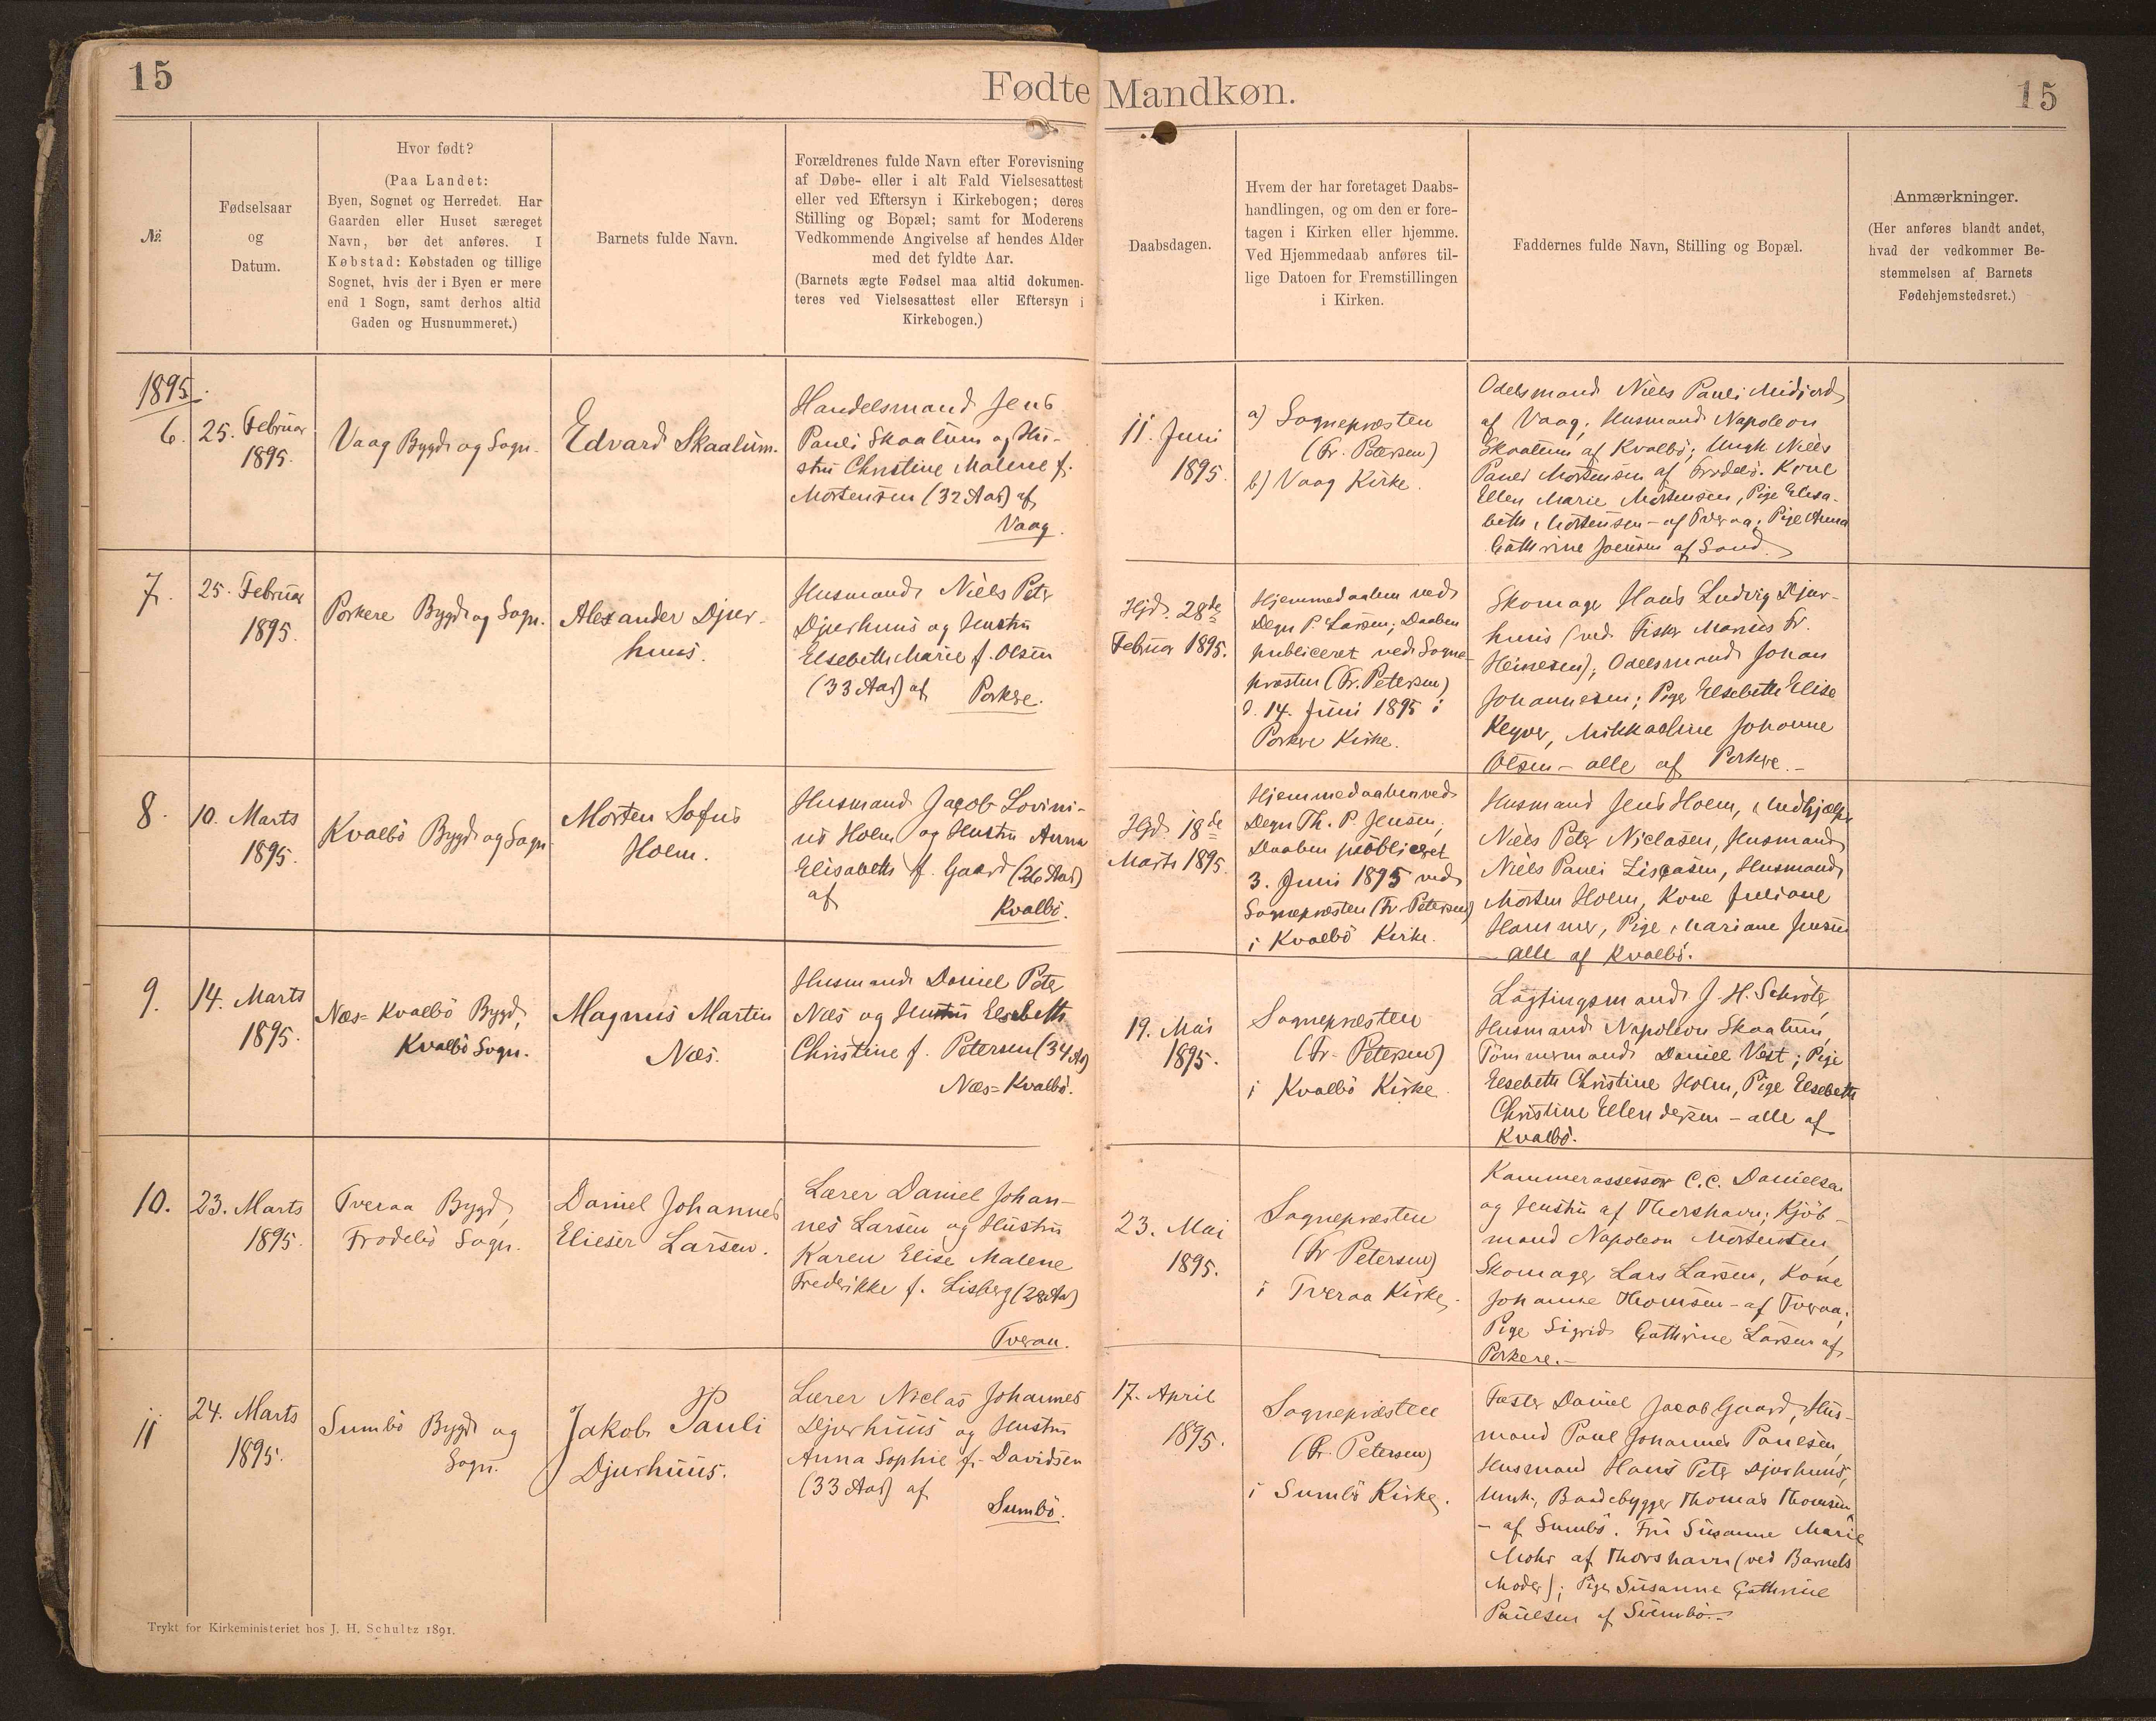 15
Fødte Mandkøn.
15
№.
Fødselsaar
og
Datum.
Hvor født?
(Paa Landet:
Byen, Sognet og Herredet. Har
Gaarden eller Huset særeget
Navn, bør det anføres. I
Købstad: Købstaden og tillige
Sognet, hvis der i Byen er mere
end 1 Sogn, samt derhos altid
Gaden og Husnummeret.)
Barnets fulde Navn.
Forældrenes fulde Navn efter Forevisning
af Døbe- eller i alt Fald Vielsesattest
eller ved Eftersyn i Kirkebogen; deres
Stilling og Bopæl; samt for Moderens
Vedkommende Angivelse af hendes Alder
med det fyldte Aar.
(Barnets ægte Fødsel maa altid dokumen-
teres ved Vielsesattest eller Eftersyn i
Kirkebogen.)
Daabsdagen.
Hvem der har foretaget Daabs-
handlingen, og om den er fore-
tagen i Kirken eller hjemme.
Ved Hjemmedaab anføres til-
lige Datoen for Fremstillingen
i Kirken.
Faddernes fulde Navn, Stilling og Bopæl.
Anmærkninger.
(Her anføres blandt andet,
hvad der vedkommer Be-
stemmelsen af Barnets
Fødehjemstedsret.)
1895.
6.
25. Februar
1895.
Vaag Bygd og Sogn.
Edvard Skaalum.
Handelsmand Jens
Pauli Skaalum og Hu-
stru Christine Malene f.
Mortensen (32 Aar) af
Vaag.
11. Juni
1895.
a) Sognepræsten
(Fr. Petersen)
b) Vaag Kirke.
Odelsmand Niels Pauli Midjord
af Vaag, Husmand Napoleon
Skaalum af Kvalbö; Ungk Niels
Pauli Mortensen af Frodebö. Kone
Ellen Marie Mortensen, Pige Elisa-
beth Mortensen - af Tveraa; Pige Anna
Cathrine Joensen af Sand.
7.
25. Februar
1895.
Porkere Bygd og Sogn.
Alexander Djur-
huus.
Husmand Niels Peter
Djurhuus og Hustru
Elsebeth Marie f. Olsen
(33 Aar) af Porkere.
Hjd. 28de
Februar 1895.
Hjemmedaaben ved
Degn P. Larsen; Daaben
publiceret ved Sogne-
præsten (Fr. Petersen)
d. 14. Juni 1895 i
Porkere Kirke.
Skomager Hans Ludvig Djur-
huus (ved Fisker Marius Fr.
Heinesen); Odelsmand Johan
Johannesen; Piger Elsebeth Elise
Kegver, Mikkaeline Johanne
Olsen - alle af Porkere.-
8.
10. Marts
1895.
Kvalbö Bygd og Sogn
Morten Sofus
Holm.
Husmand Jacob Lovini-
us Holm og Hustru Anna
Elisabeth f. Gaard (26 Aar)
af
Kvalbö.
Hjd. 18de
Marts 1895.
Hjemmedaaben ved
Degn Th. P. Jensen;
Daaben publiceret
3. Juni 1895 ved
Sognepræsten (Fr. Petersen)
i Kvalbö Kirke.
Husmand Jens Holm, Medhjælper
Niels Peter Niclasen, Husmand
Niels Pauli Ziscasen, Husmand
Morten Holm, Kone Juliane
Hammer, Pige Mariane Jensen
- alle af Kvalbö.
9.
14. Marts
1895.
Næs-Kvalbö Bygd,
Kvalbö Sogn.
Magnus Martin
Næs.
Husmand Daniel Peter
Næs og Hustru Elsebeth
Christine f. Petersen (34 Aar)
Næs-Kvalbö.
19. Mai
1895.
Sognepræsten
(Fr. Petersen)
i Kvalbö Kirke.
Lagtingsmand J. H. Schröter,
Husmand Napoleon Skaalum,
Tömmermand Daniel Vest; Pige
Elsebeth Christine Holm, Pige Elsebeth
Christine Ellendersen - alle af
Kvalbö.
10.
23. Marts
1895.
Tveraa Bygd,
Frodebö Sogn.
Daniel Johannes
Elieser Larsen.
Lærer Daniel Johan-
nes Larsen og Hustru
Karen Elise Malene
Frederikke f. Lisberg (28 Aar)
Tveraa.
23. Mai
1895.
Sognepræsten
(Fr Petersen)
i Tveraa Kirke.
Kammerassessor C.C. Danielsen
og Hustru af Thorshavn; Kjöb-
mand Napoleon Mortensen,
Skomager Lars Larsen, Kone
Johanne Thomsen - af Tveraa;
Pige Sigrid Cathrine Larsen af
Porkere.-
11
24. Marts
1895.
Sumbö Bygd og
Sogn.
Jakob Pauli
Djurhuus.
Lærer Niclas Johannes
Djurhuus og Hustru
Anna Sophie f. Davidsen
(33 Aar) af
Sumbö.
17. April
1895.
Sognepræsten
(Fr. Petersen)
i Sumbö Kirke.
Fæster Daniel Jacob Gaard, Hus-
mand Poul Johannes Poulsen,
Husmand Hans Peter Djurhuus,
Ungk. Baadebygger Thomas Thomsen
- af Sumbö. Fru Susanne Marie
Mohr af Thorshavn (ved Barnets
Moder); Pige Susanne Cathrine
Poulsen af Sumbö.-
Trykt for Kirkeministeriet hos J. H. Schultz 1891.